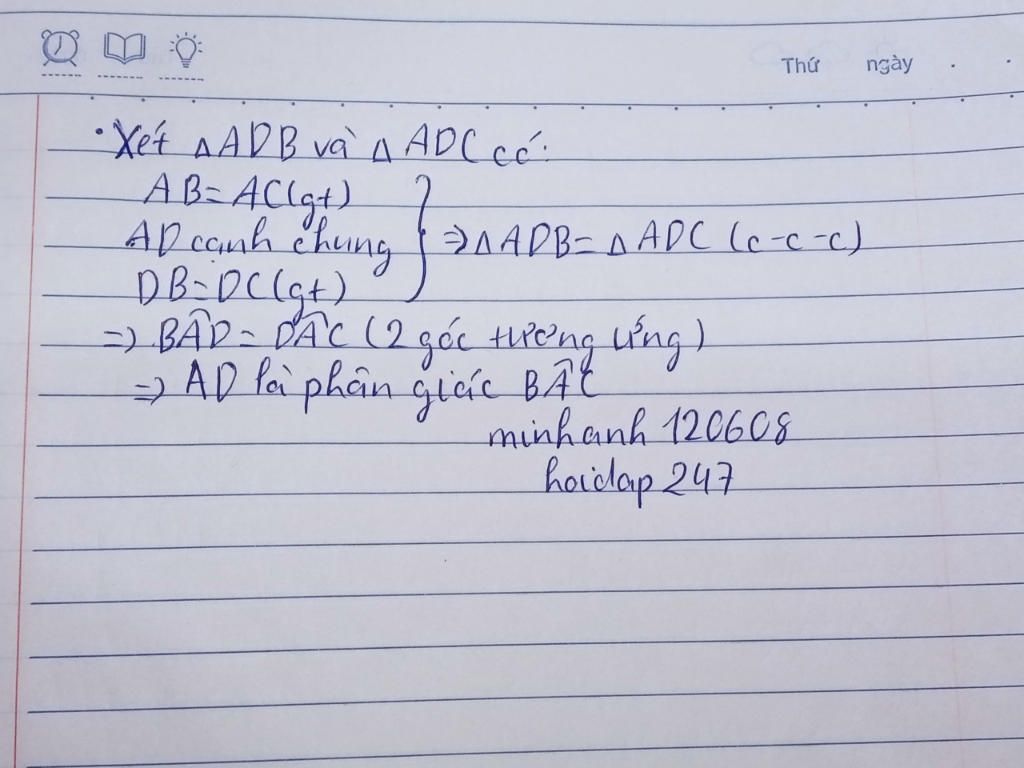 Thứ ngày
• Xét △ADB và △ADC có:
AB = AC (gt)
AD cạnh chung
DB = DC (gt)
} ⇒ △ADB = △ADC (c-c-c)
⇒ BÂD = DÂC (2 góc tương ứng)
⇒ AD là phân giác BÂC
minhanh 120608
hoidap 247